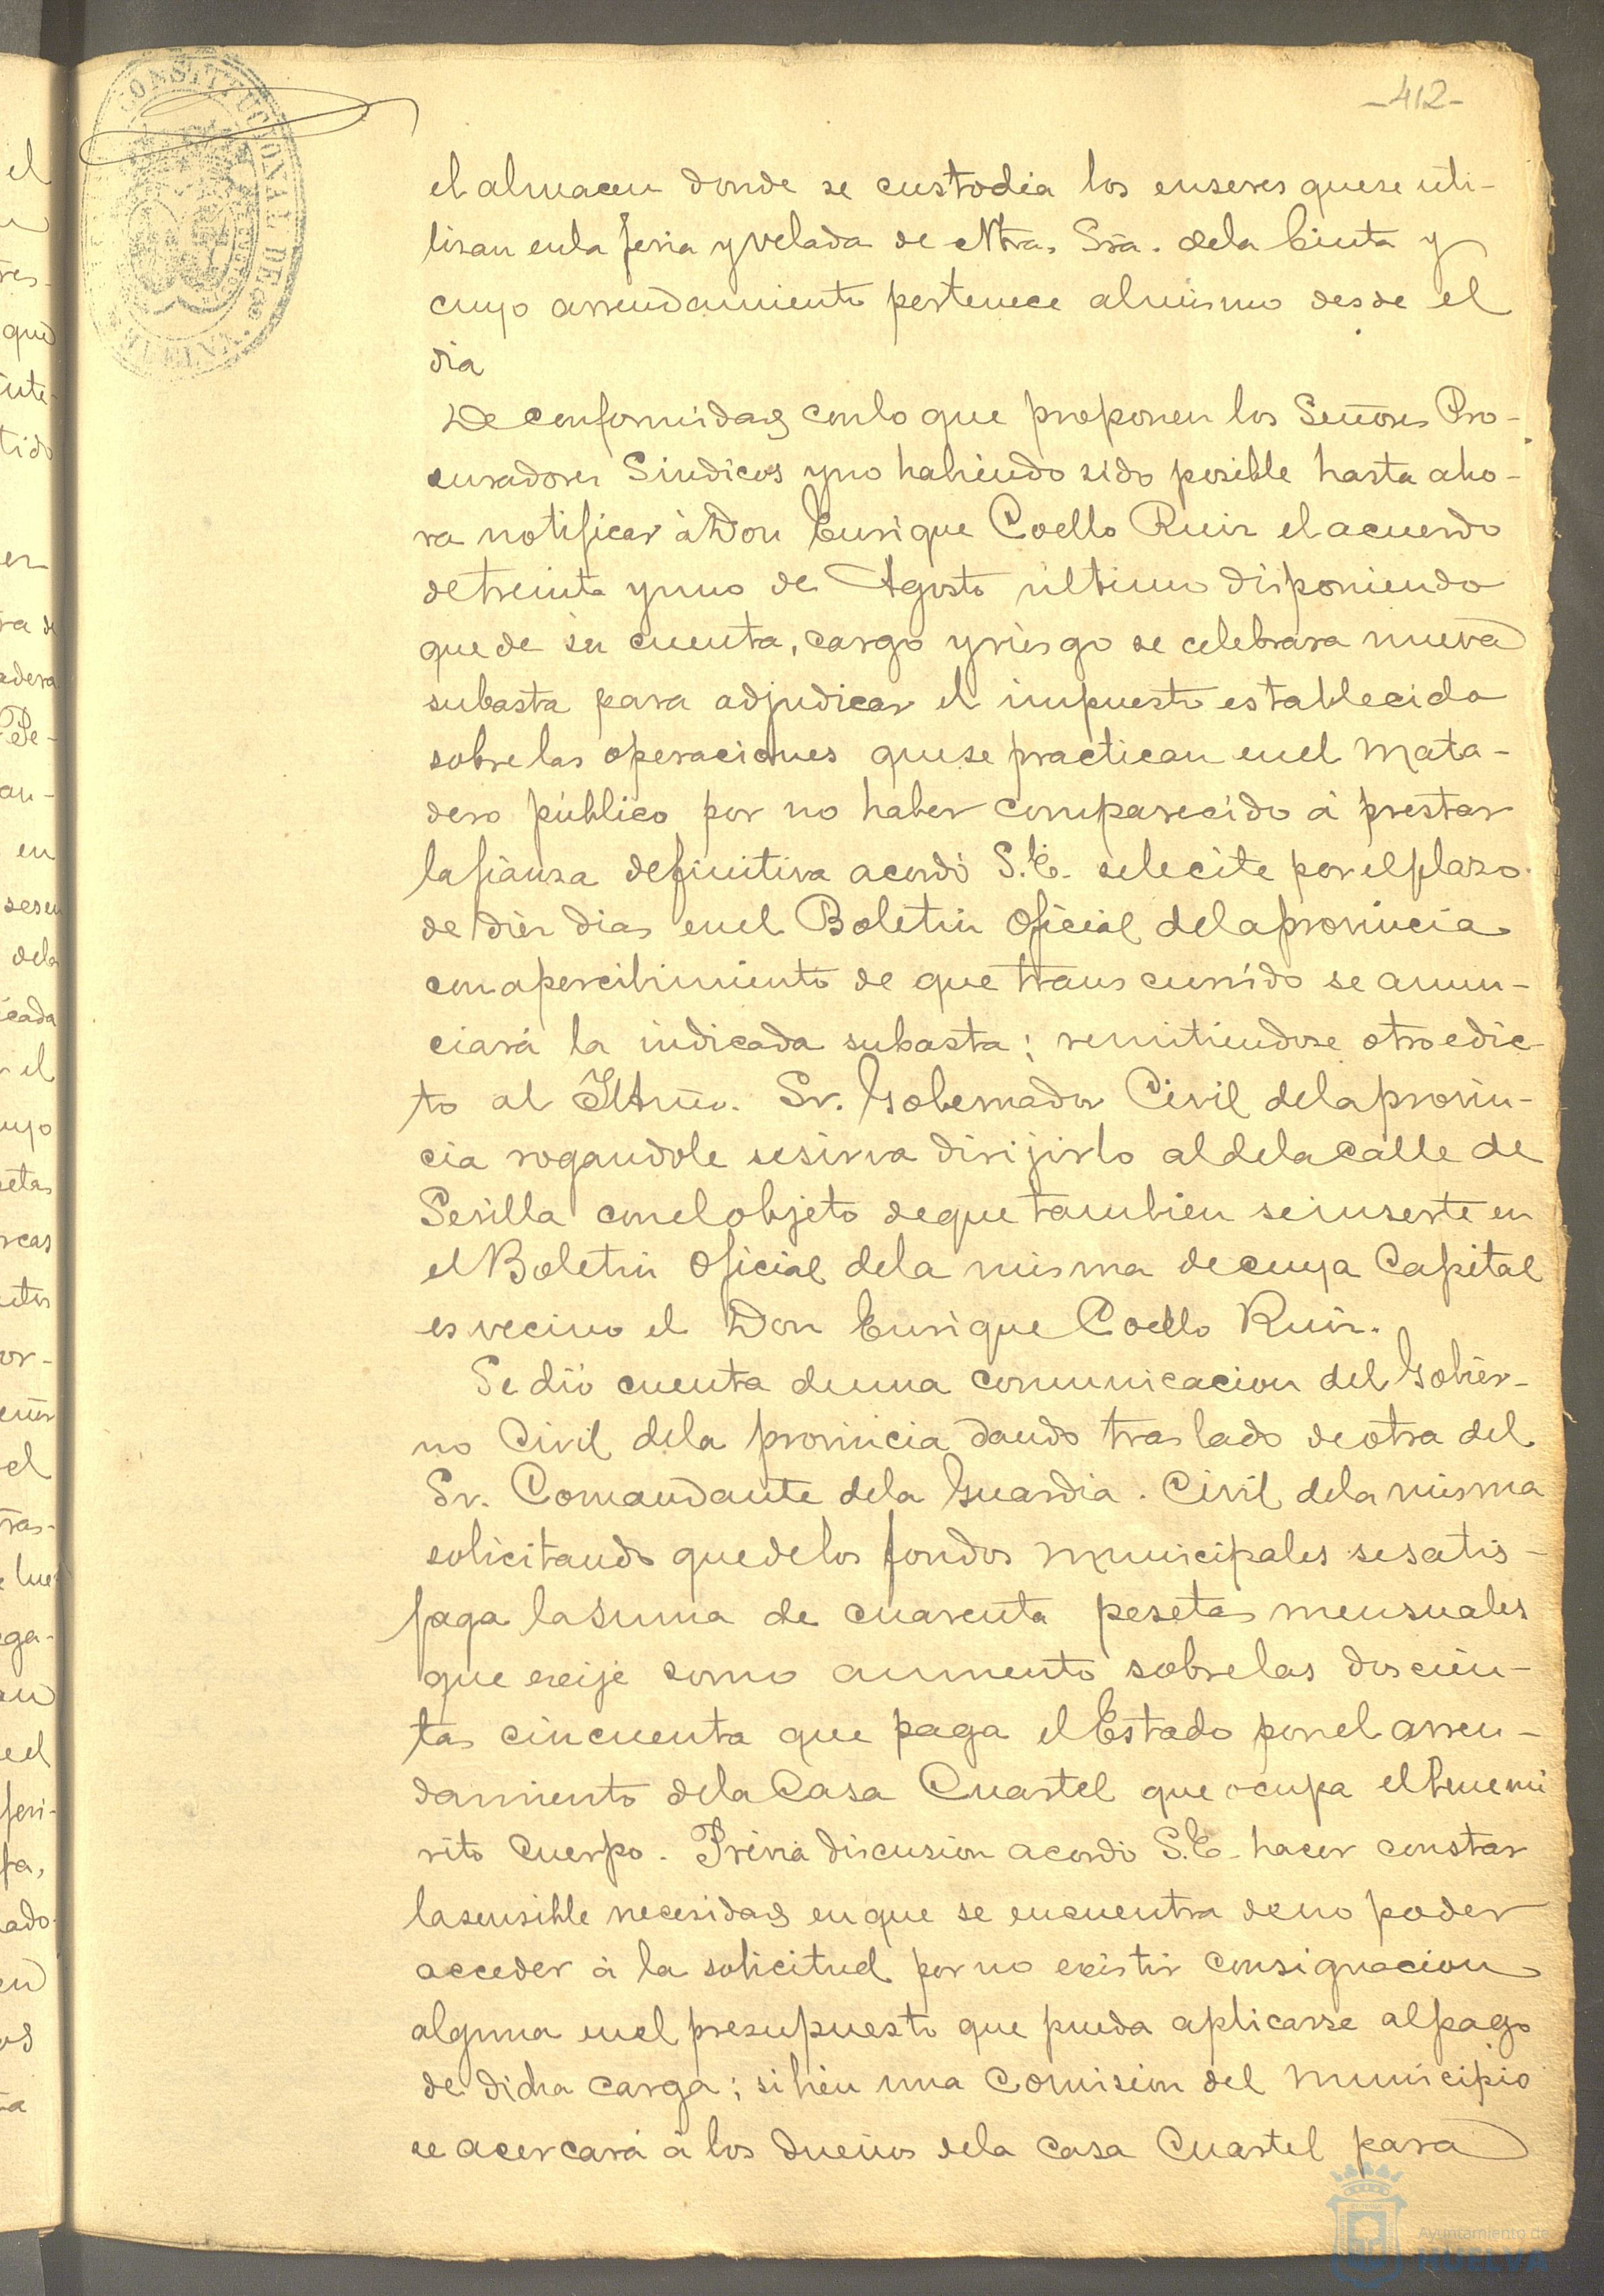 -412-
el almacen donde se custodia los enseres que se uti-
lisan en la feria y velada de Ntra. Sra. de la Cinta y
cuyo arrendamiento pertenece al mismo desde el
dia
De conformidad con lo que proponen los Señores Pro-
curadores Sindicos y no habiendo sido posible hasta aho-
ra notificar à Don Enrique Coello Ruiz el acuerdo
de treinta y uno de Agosto último disponiendo
que de su cuenta, cargo y riesgo se celebrara nueva
subasta para adjudicar el impuesto establecido
sobre las operaciones que se practican en el Mata-
dero público por no haber comparecido á prestar
la fianza definitiva acordó S.E. se le cite por el plazo
de diez dias en el Boletin Oficial de la provincia
con apercibimiento de que transcurrido se anun-
ciará la indicada subasta; remitiendose otro edic-
to al Iltmo. Sr. Gobernador Civil de la provin-
cia rogandole se sirva dirijirlo al de la calle de
Sevilla con el objeto de que tambien se inserte en
el Boletin Oficial de la misma de cuya Capital
es vecino el Don Enrique Coello Ruiz.
Se dió cuenta de una comunicacion del Gobier-
no Civil de la provincia dando traslado de otra del
Sr. Comandante de la Guardia. Civil de la misma
solicitando que de los fondos municipales se satis-
faga la suma de cuarenta pesetas mensuales
que exije como aumento sobre las doscien-
tas cincuenta que paga el Estado por el arren-
damiento de la Casa Cuartel que ocupa el benemé
rito Cuerpo. Previa discusion acordó S.E. hacer constar
la sensible necesidad en que se encuentra de no poder
acceder á la solicitud por no existir consignacion
alguna en el presupuesto que pueda aplicarse al pago
de dicha carga; si bien una Comision del Municipio
se acercará á los dueños de la casa Cuartel para
Ayuntamiento de
HUELVA